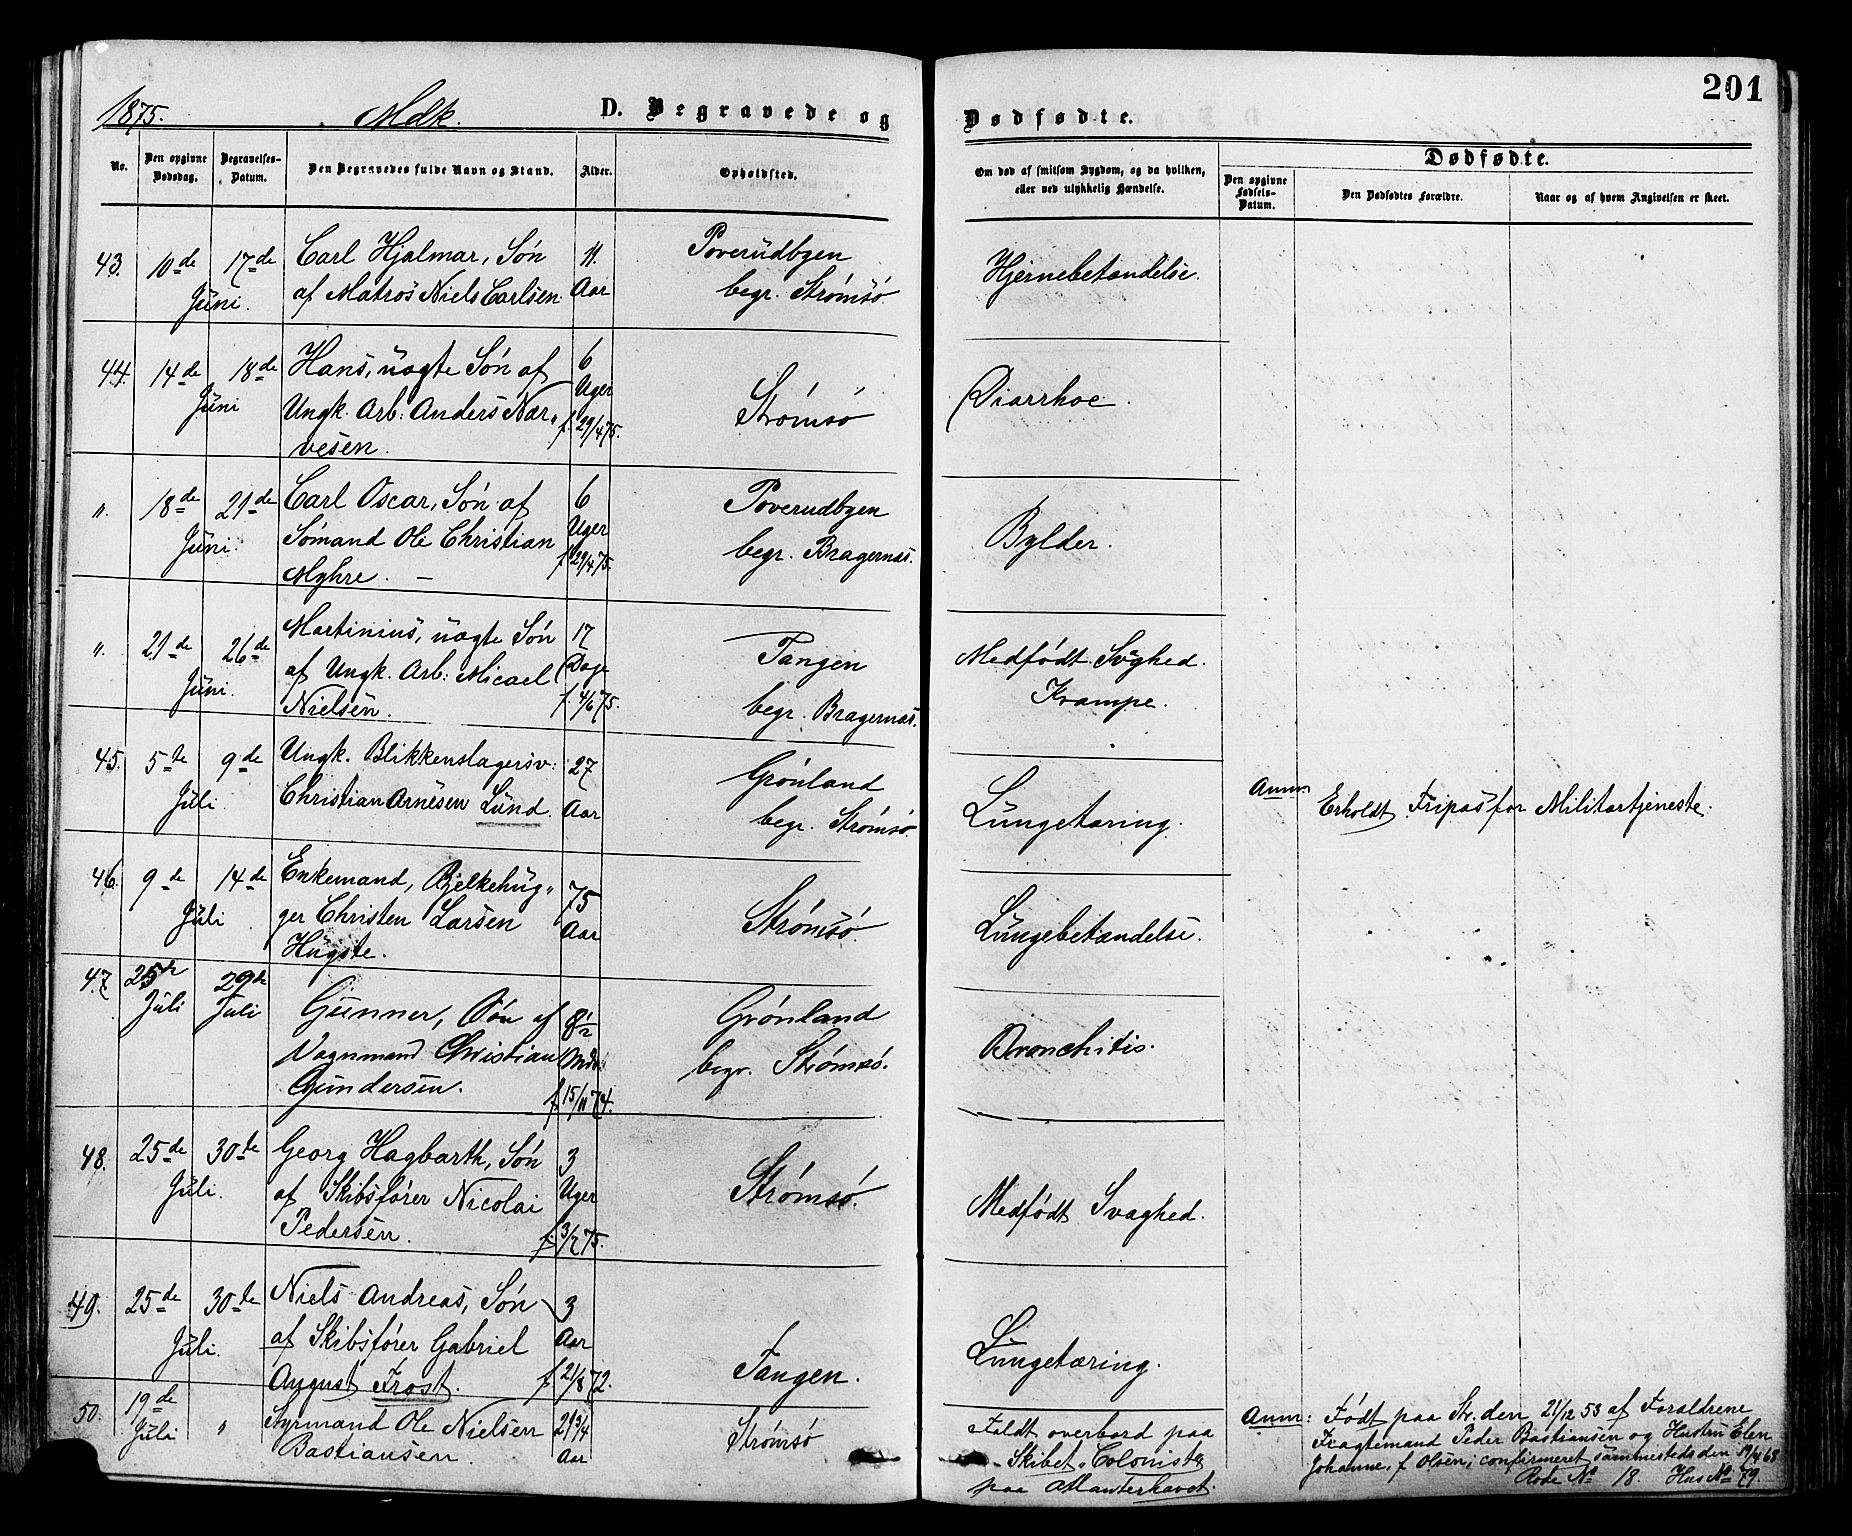 201
1875.
Mdk.
D. Begravede og
Dødfødte.
No.
Den opgivne
Dødsdag.
Begravelses-
Datum.
Den Begravedes fulde Navn og Stand.
Alder.
Opholdsted.
Om død af smitsom Sygdom, og da hvilken,
eller ved ulykkelig Hændelse.
Dødfødte.
Den opgivne
Fødsels-
Datum.
Den Dødfødtes Forældre.
Naar og af hvem Angivelsen er skeet.
43.
10de
17de
Juni.
Carl Hjalmar, Søn
af Matros Niels Carlsen.
11
Aar
Poverudbyen
begr. Strømsö
Hjernebetændelse.
44.
14de
18de
Juni
Hans, uægte Søn af
Ungk. Arb: Anders Nar-
vesen.
6
Uger
f. 29/4 75.
Strømsö
Diarrhoe.
"
18de
21de
Juni.
Carl Oscar, Søn af
Sømand Ole Christian
Myhre. —
6
Uger
f 29/4 75.
Poverudbyen
begr. Bragernæs.
Bylder.
"
21de
26de
Juni.
Martinius, uægte Søn
af Ungk. Arb: Micael
Nielsen.
17
Dage
f. 4/6 75.
Tangen
begr. Bragernæs.
Medfødt Svghed.
Krampe.
45.
5te
9de
Juli.
Ungk. Blikkenslagersv:
Christian Arnesen Lund.
27
Aar
Grønland
begr. Strømsö.
Lungetæring.
Anm.
Erholdt Fripas for Militærtjeneste.
46.
9de
14de
Juli.
Enkemand, Bjelkehug-
ger Christen Larsen
Hugste.
75
Aar
Strømsö.
Lungebetændelse.
47
25de
Juli
29de
Juli
Gunner, Søn af
Vognmand Christian
Gundersen.
8½
Mdr.
f 15/11 74.
Grønland
begr. Strømsö.
Bronchitis.
48.
25de
30te
Juli.
Georg Hagbarth, Søn
af Skibsfører Nicolai
Pedersen.
3
Uger
f. 3/7 75.
Strømsö.
Medfødt Svaghed.
49.
25de
30te
Juli.
Niels Andreas, Søn
af Skibsfører Gabriel
August Frost.
3
Aar
f 21/8 72.
Tangen.
Lungetæring.
50.
19de
Juli
"
Styrmand Ole Nielsen
Bastiansen.
21 3/4
Aar
Strømsö
Faldt overbord paa
Skibet "Colonist"
paa Atlanterhavet.
Anm: Født paa Str. den 21/12 53 af Forældrene
Fragtemand Peder Bastiansen og Hustru Elen
Johanne, f Olsen; confirmeret sammesteds den 19/4 68
Rode No 18. Hus No 79.